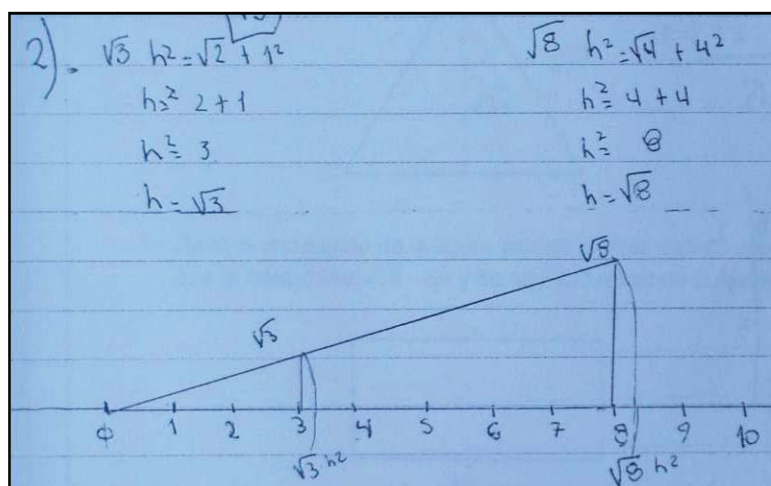 2). √3 h² = √2 + 1²
h² = 2 + 1
h² = 3
h = √3
√8 h² = √4 + 4²
h² = 4 + 4
h² = 8
h = √8
√8
√3
0 1 2 3 4 5 6 7 8 9 10
√3 h²
√8 h²